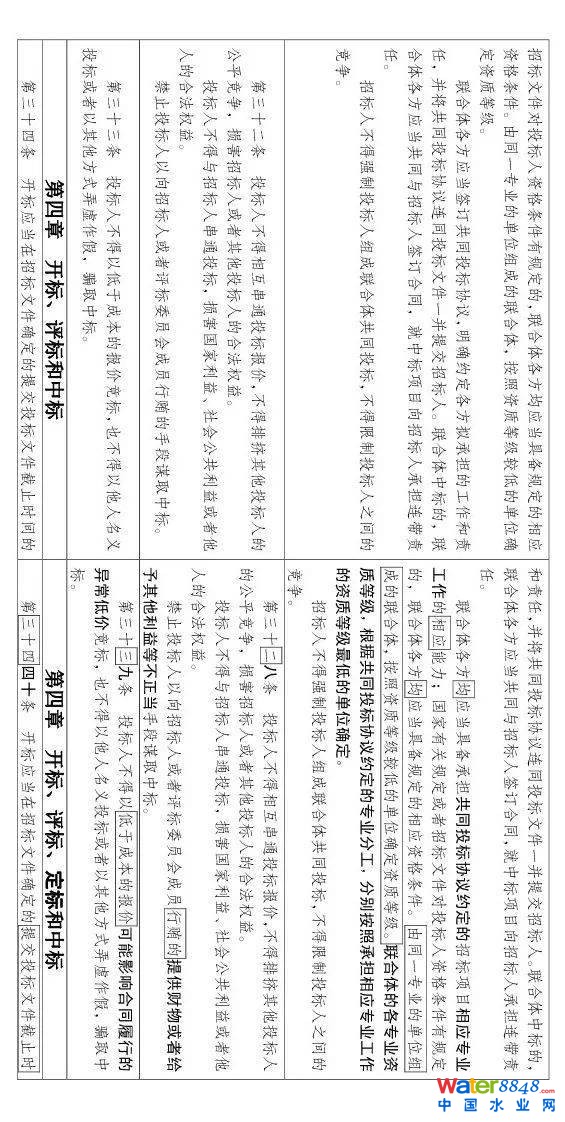 招标文件对投标人资格条件有规定的，联合体各方均应当具备规定的相应
资格条件。由同一专业的单位组成的联合体，按照资质等级较低的单位确
定资质等级。
联合体各方应当签订共同投标协议，明确约定各方拟承担的工作和责
任，并将共同投标协议连同投标文件一并提交招标人。联合体中标的，联
合体各方应当共同与招标人签订合同，就中标项目向招标人承担连带责
任。
招标人不得强制投标人组成联合体共同投标，不得限制投标人之间的
竞争。
第三十二条 投标人不得相互串通投标报价，不得排挤其他投标人的
公平竞争，损害招标人或者其他投标人的合法权益。
投标人不得与招标人串通投标，损害国家利益、社会公共利益或者他
人的合法权益。
禁止投标人以向招标人或者评标委员会成员行贿的手段谋取中标。
第三十三条 投标人不得以低于成本的报价竞标，也不得以他人名义
投标或者以其他方式弄虚作假，骗取中标。
第四章 开标、评标和中标
第三十四条 开标应当在招标文件确定的提交投标文件截止时间的
和责任，并将共同投标协议连同投标文件一并提交招标人。联合体中标的，
联合体各方应当共同与招标人签订合同，就中标项目向招标人承担连带责
任。
联合体各方均应当具备承担共同投标协议约定的招标项目相应专业
工作的相应能力；国家有关规定或者招标文件对投标人资格条件有规定
的，联合体各方均应当具备规定的相应资格条件。由同一专业的单位组
成的联合体，按照资质等级较低的单位确定资质等级。联合体的各专业资
质等级，根据共同投标协议约定的专业分工，分别按照承担相应专业工作
的资质等级最低的单位确定。
招标人不得强制投标人组成联合体共同投标，不得限制投标人之间的
竞争。
第三十三八条 投标人不得相互串通投标报价，不得排挤其他投标人
的公平竞争，损害招标人或者其他投标人的合法权益。
投标人不得与招标人串通投标，损害国家利益、社会公共利益或者他
人的合法权益。
禁止投标人以向招标人或者评标委员会成员行贿的提供财物或者给
予其他利益等不正当手段谋取中标。
第三十三九条 投标人不得以低于成本的报价可能影响合同履行的
异常低价竞标，也不得以他人名义投标或者以其他方式弄虚作假，骗取中
标。
第四章 开标、评标、定标和中标
第三十四四十条 开标应当在招标文件确定的提交投标文件截止时
Water8848.com
中国水业网